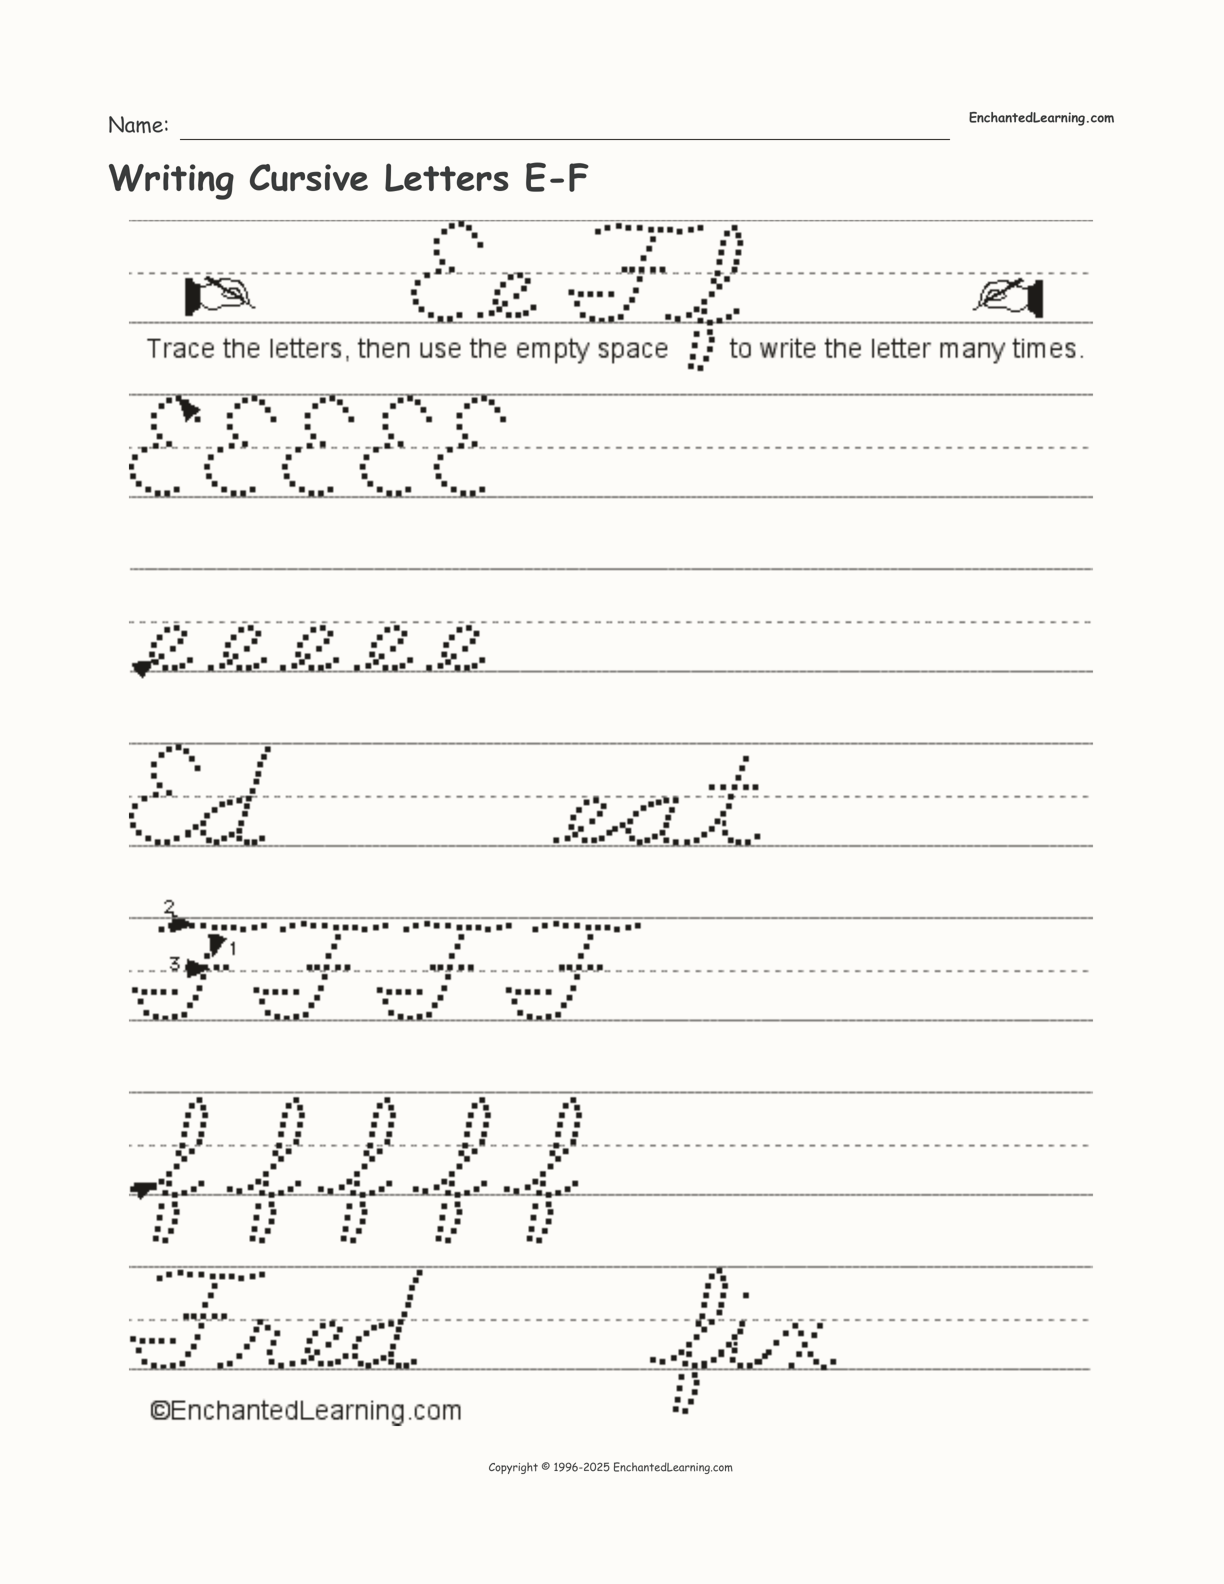 Name: EnchantedLearning.com
Writing Cursive Letters E-F
E e F f
Trace the letters, then use the empty space to write the letter many times.
E E E E E
e e e e e
Ed eat
2
1
3
F F F F
f f f f f
Fred fix
©EnchantedLearning.com
Copyright © 1996-2025 EnchantedLearning.com